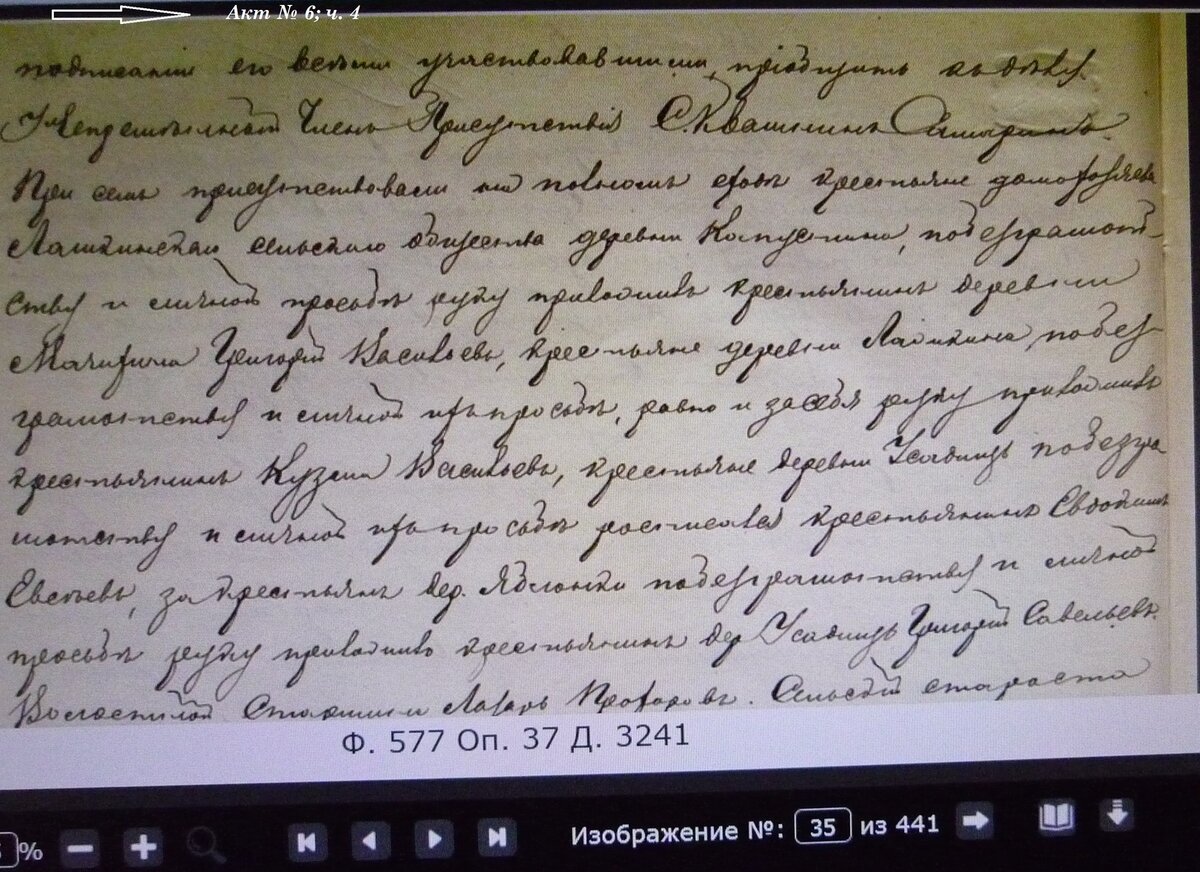 Акт № 6; ч. 4
подписании его всеми участвовавшими, приобщить къ дѣлу.
Непремѣнный Членъ Присутствія С. Квашнинъ Самаринъ.
При семъ присутствовали на повѣсткѣ крестьяне домохозяева
Лашкинскаго сельскаго общества деревни Капустина, по безграмот-
ству и личной просьбѣ руку приложилъ крестьянинъ деревни
Григорій Васильевъ, крестьяне деревни Лашкина, по без-
грамотству и личной ихъ просьбѣ, равно и за себя руку приложилъ
крестьянинъ Кузьма Васильевъ, крестьяне деревни Усадищъ по безгра
мотству и личной ихъ просьбѣ росписался крестьянинъ Евдокимъ
Евсеевъ, за крестьянъ дер. Яблонки по безграмотству и личной
просьбѣ руку приложилъ крестьянинъ дер Усадищъ Григорій Савельевъ.
Волостной Старшина Лазарь Прохоровъ. Сельскій староста
Ф. 577 Оп. 37 Д. 3241
% Изображение №: 35 из 441